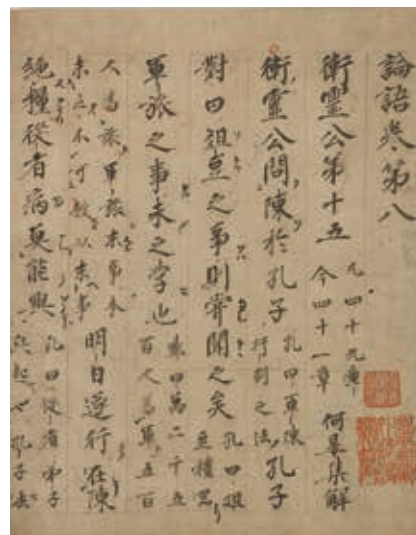 論語卷第八
衛靈公第十五 凡四十九章 今四十一章 何晏集解
衛靈公問陳於孔子 孔曰軍陳行列之法 孔子
對曰俎豆之事則嘗聞之矣 孔曰俎豆禮器
軍旅之事未之學也 鄭曰萬二千五百人為軍五百
人為旅軍旅末事本未立不可教以末事 明日遂行在陳
絕糧從者病莫能興 孔曰從者弟子興起也孔子去